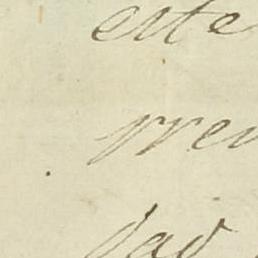 este
pren
dad